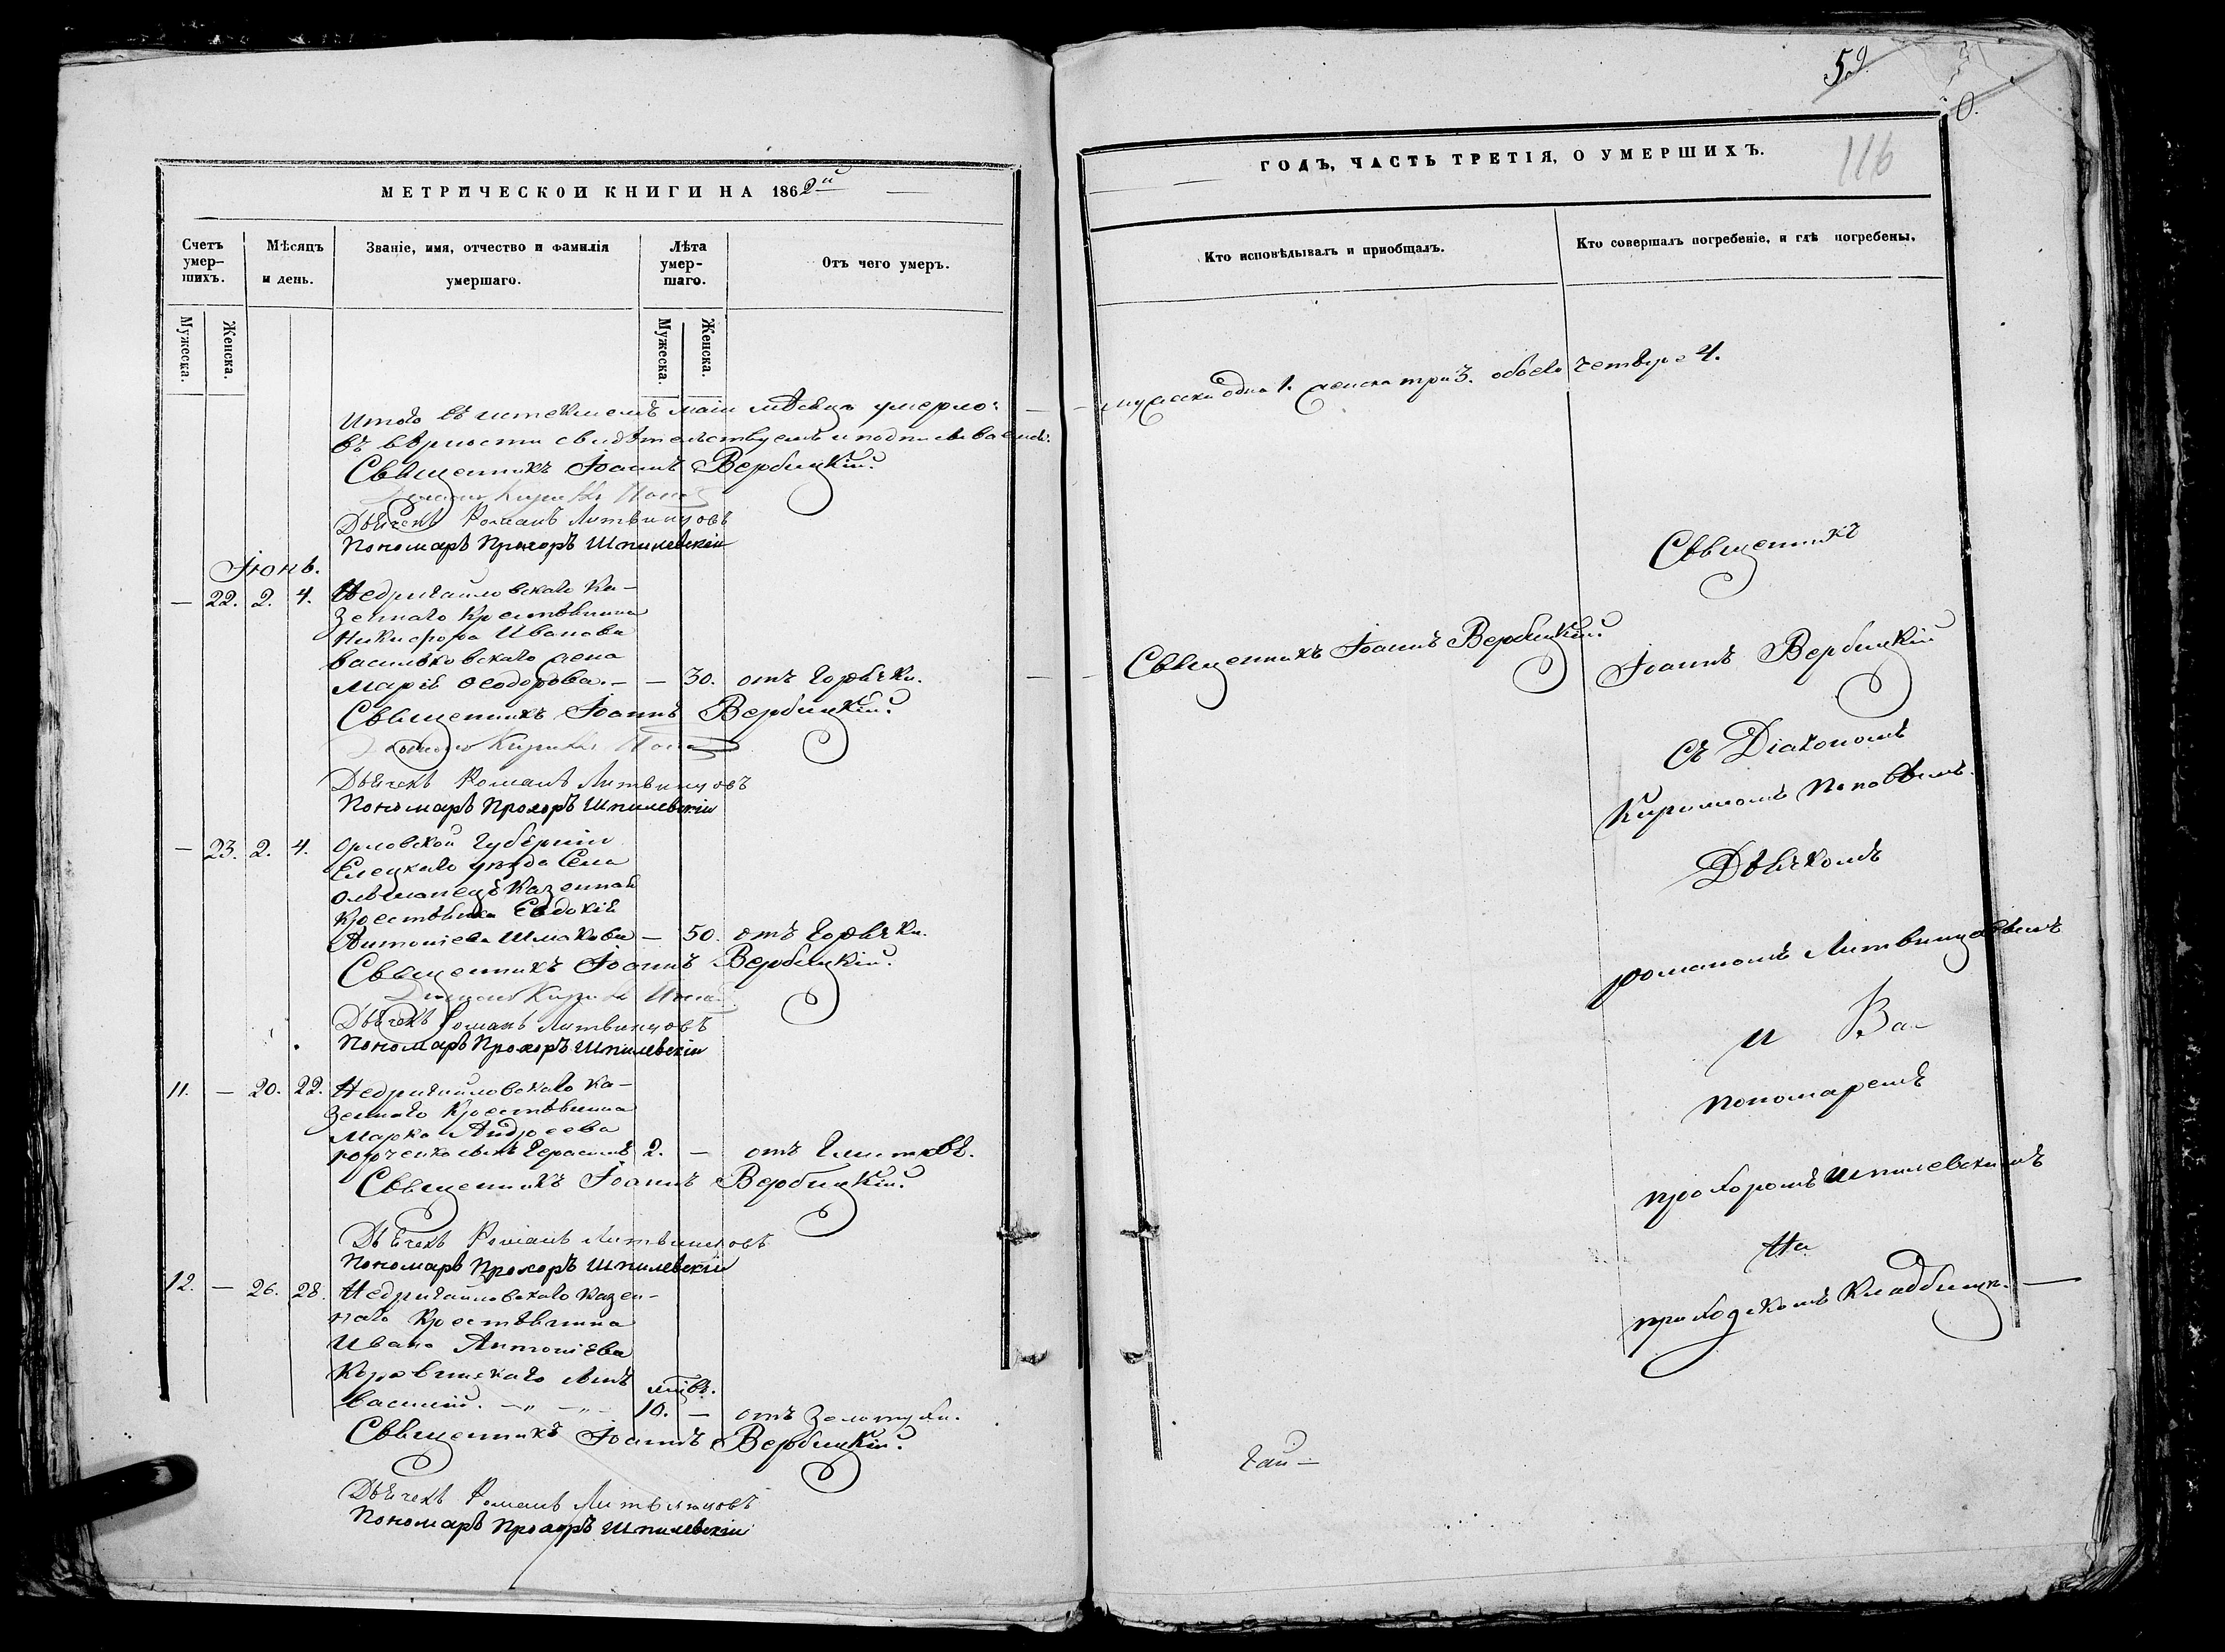 МЕТРИЧЕСКОЙ КНИГИ НА 1862й
Счетъ умер-шихъ.
Мѣсяцъ и день.
Званіе, имя, отчество и фамилія умершаго.
Лѣта умер-шаго.
Отъ чего умеръ.
Мужеска.
Женска.
Мужеска.
Женска.
Итого въ истекшемъ маіи мѣсяцѣ умерло:
въ вѣрности свидѣтельствуемъ и подписываемъ:
Священникъ Іоаннъ Вербицкій.
Дьячекъ Романъ Литвинцовъ
Пономарь Прохоръ Шпилевскій
Іюнь.
— 22. 2. 4. Недригайловскаго Ка-
зеннаго Крестьянина
Никифора Иванова
Васильковскаго жена
Марія Ѳеодорова. — — 30. отъ Горячки.
Священникъ Іоаннъ Вербицкій.
Дьячекъ Романъ Литвинцовъ
Пономарь Прохоръ Шпилевскій
— 23. 2. 4. Орловской Губерніи
Елецкаго уѣзда Села
Ольшанецъ Казенная
Крестьянка Евдокія
Антоніева Шмакова — 50. отъ Горячки.
Священникъ Іоаннъ Вербицкій.
Дьячекъ Романъ Литвинцовъ
Пономарь Прохоръ Шпилевскій
11. — 20. 22. Недригайловскаго Ка-
зеннаго Крестьянина
Марка Андреева
сынъ Герасимъ 2. — отъ Глистовъ.
Священникъ Іоаннъ Вербицкій.
Дьячекъ Романъ Литвинцовъ
Пономарь Прохоръ Шпилевскій
12. — 26. 28. Недригайловскаго Казен-
наго Крестьянина
Ивана Антоніева
Коровинскаго сынъ
Василій. — „ — „ — 10. — отъ Золотухи.
Священникъ Іоаннъ Вербицкій.
Дьячекъ Романъ Литвинцовъ
Пономарь Прохоръ Шпилевскій
59.
116
ГОДЪ, ЧАСТЬ ТРЕТІЯ, О УМЕРШИХЪ.
Кто исповѣдывалъ и пріобщалъ.
Кто совершалъ погребеніе, и гдѣ погребены.
мужеска одна 1. женска три 3. обоего четверо 4.
Священникъ Іоаннъ Вербицкій.
Священникъ
Іоаннъ Вербицкій
съ Діакономъ
Кириломъ Поповымъ.
Дьячкомъ
Романомъ Литвинцовымъ
и
пономаремъ
Прохоромъ Шпилевскимъ
На
приходскомъ Кладбищѣ. —